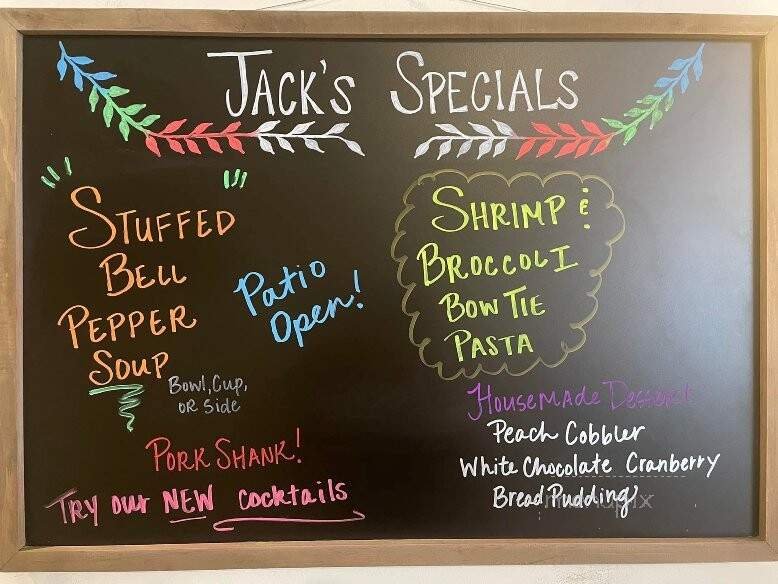 Jack's Specials
Stuffed
Bell
Pepper
Soup
Bowl, Cup,
or Side
Patio
Open!
Shrimp &
Broccoli
Bow Tie
Pasta
Pork Shank!
Try our NEW cocktails
Housemade Dessert
Peach Cobbler
White Chocolate Cranberry
Bread Pudding